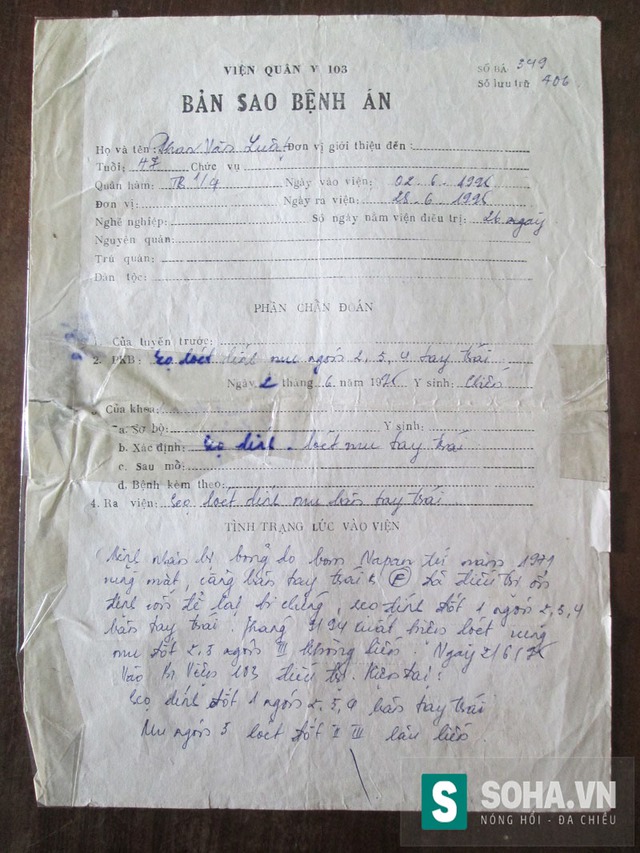 VIỆN QUÂN Y 103
SỐ BA 349
Số lưu trữ 406
BẢN SAO BỆNH ÁN
Họ và tên: Phan Văn Luật Đơn vị giới thiệu đến:
Tuổi: 47 Chức vụ
Quân hàm: TB 1/4 Ngày vào viện: 02.6.1996
Đơn vị: Ngày ra viện: 28.6.1996
Nghề nghiệp: Số ngày nằm viện điều trị: 26 ngày
Nguyên quán:
Trú quán:
Dân tộc:
PHẦN CHẨN ĐOÁN
1. Của tuyến trước:
2. PKB: Sẹo loét dính mu ngón 2, 5, 4 tay trái
Ngày 2 tháng 6 năm 1996 Y sinh: Chiến
3. Của khoa:
a. Sơ bộ: Y sinh:
b. Xác định: Sẹo dính - loét mu tay trái
c. Sau mổ:
d. Bệnh kèm theo:
4. Ra viện: Sẹo loét dính mu bàn tay trái
TÌNH TRẠNG LÚC VÀO VIỆN
Bệnh nhân bị bỏng do bom Napan từ năm 1971
vùng mặt, cẳng bàn tay trái & (P) đã điều trị ổn
định còn để lại di chứng, sẹo dính đốt 1 ngón 2, 3, 4
bàn tay trái. Tháng 3/94 xuất hiện loét vùng
mu đốt 2, 3 ngón III không liền. Ngày 2/6/96
Vào Bv Viện 103 điều trị. Hiện tại:
Sẹo dính đốt 1 ngón 2, 3, 4 bàn tay trái
Mu ngón 3 loét đốt II III lâu liền
S SOHA.VN
NÓNG HỔI - ĐA CHIỀU